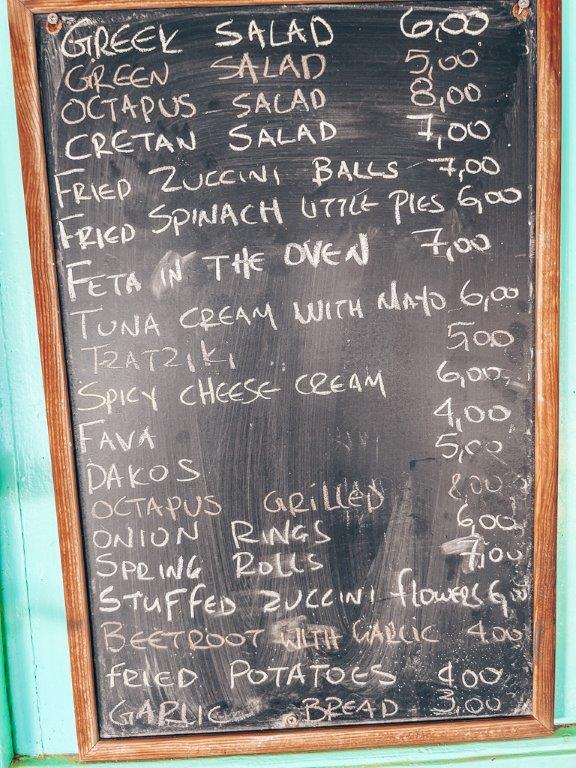 GREEK SALAD 6,00
GREEN SALAD 5,00
OCTAPUS SALAD 8,00
CRETAN SALAD 7,00
FRIED ZUCCINI BALLS 7,00
FRIED SPINACH LITTLE PIES 6,00
FETA IN THE OVEN 7,00
TUNA CREAM WITH MAYO 6,00
TZATZIKI 5,00
SPICY CHEESE CREAM 6,00
FAVA 4,00
DAKOS 5,00
OCTAPUS GRILLED 8,00
ONION RINGS 6,00
SPRING ROLLS 7,00
STUFFED ZUCCINI flowers 6,00
BEETROOT WITH GARLIC 4,00
FRIED POTATOES 4,00
GARLIC BREAD 3,00